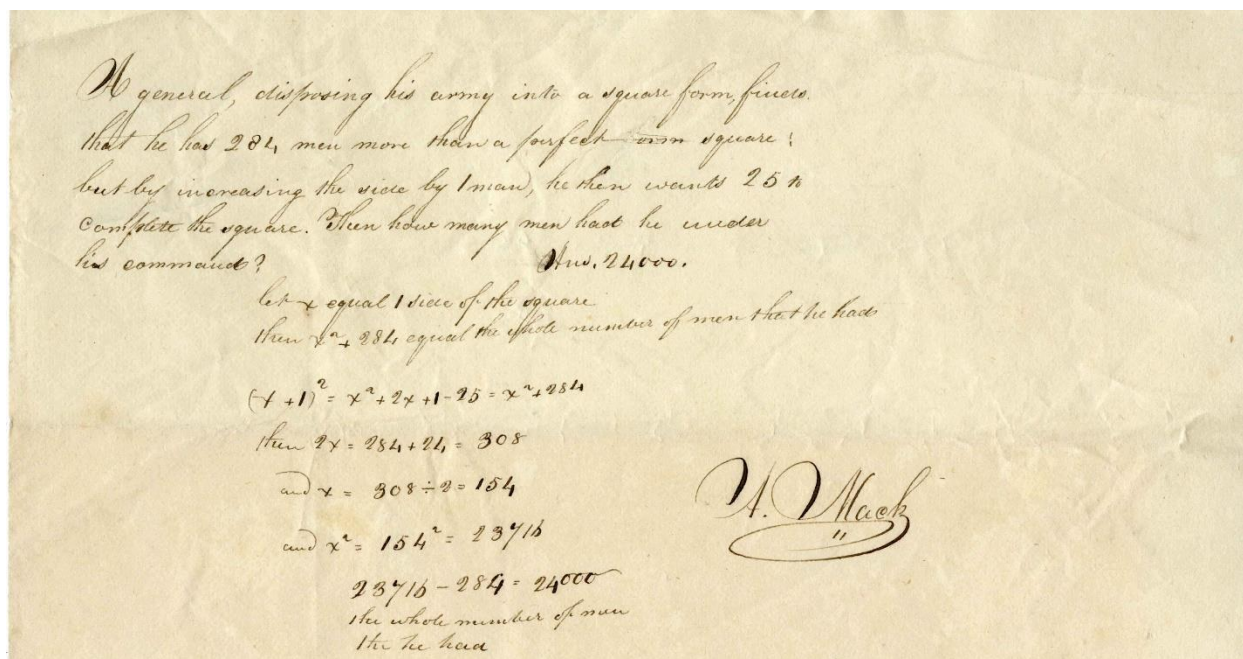 A general, disposing his army into a square form, finds
that he has 284 men more than a perfect square:
but by increasing the side by 1 man, he then wants 25 to
complete the square. Then how many men had he under
his command? Ans. 24000.
let x equal 1 side of the square
then x²+284 equal the whole number of men that he had
(x+1)² = x²+2x+1-25 = x²+284
then 2x = 284+24 = 308
and x = 308÷2 = 154
and x² = 154² = 23716
A. Mack
23716-284 = 24000
the whole number of men
the he had